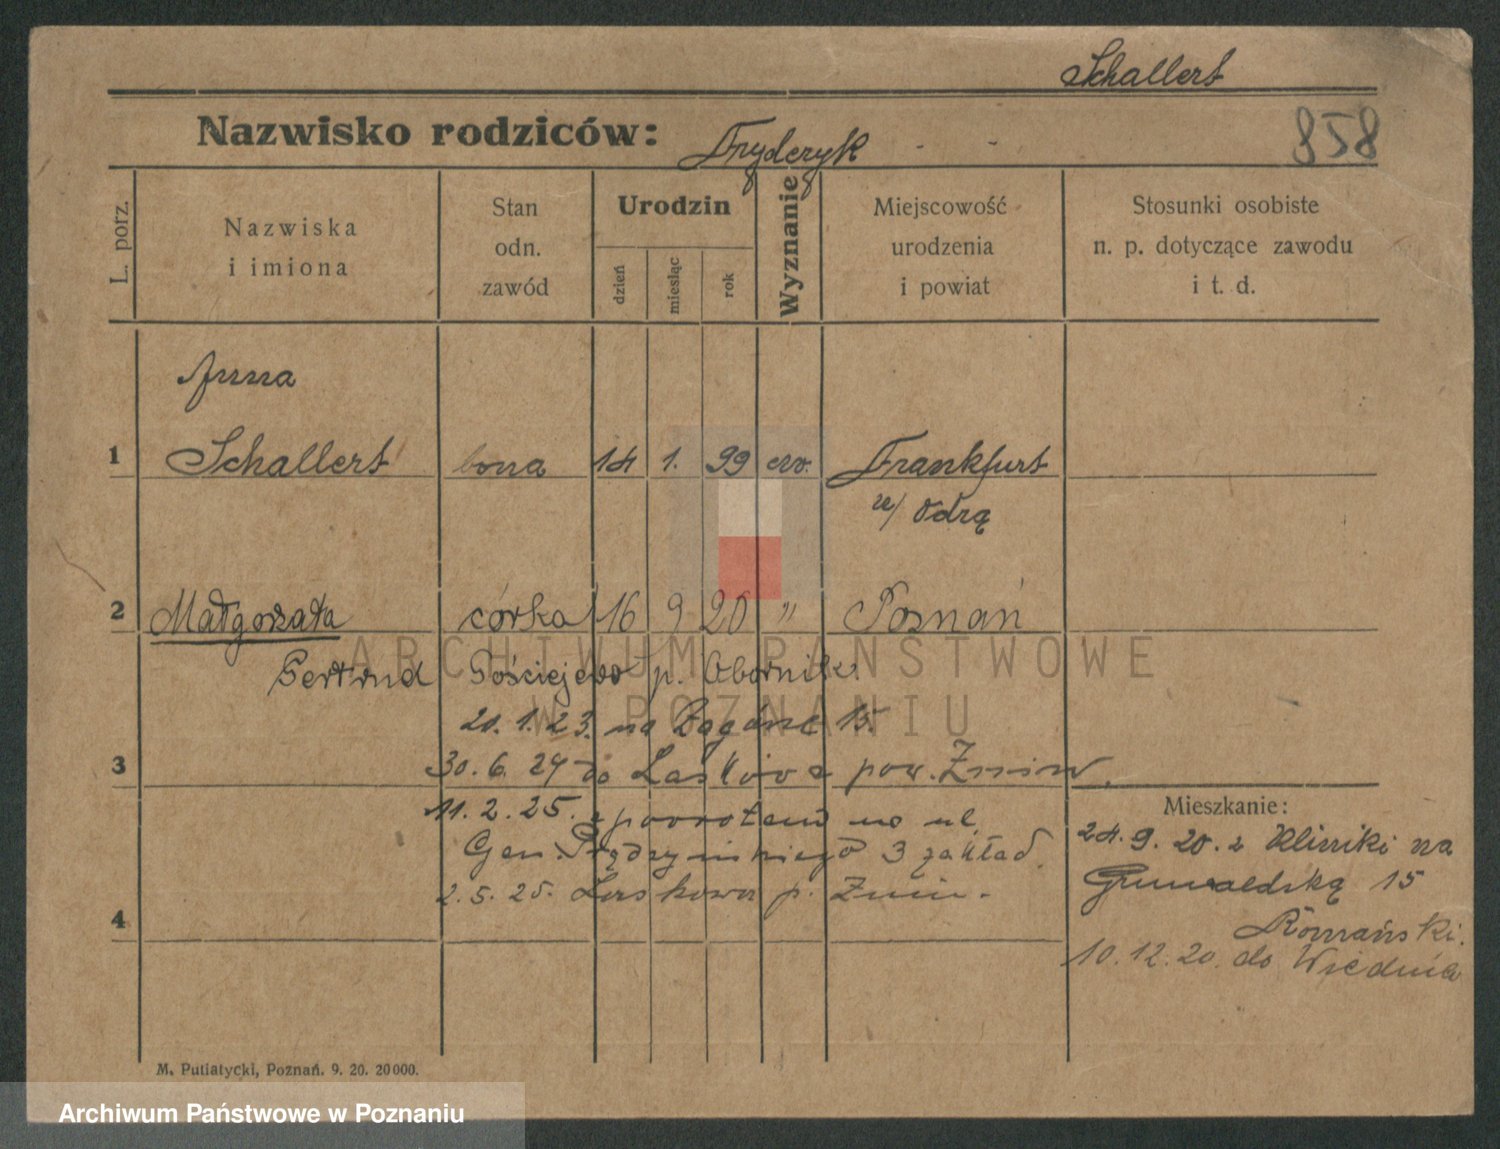 Schallert
Nazwisko rodziców: Fryderyk - -
858
L. porz.
Nazwiska
i imiona
Stan
odn.
zawód
Urodzin
dzień
miesiąc
rok
Wyznanie
Miejscowość
urodzenia
i powiat
Stosunki osobiste
n. p. dotyczące zawodu
i t. d.
Anna
1 Schallert bona 14 1. 99 ew. Frankfurt
n/ Odrą
2 Małgorzata córka 16 9 20 " Poznań
Gertrud Gościejewo p. Oborniki
20.1.23. na 15.
3 30.6.24 do Laskowa pow. Żnin.
11.2.25. z powrotem na ul.
Gen. Prądzyńskiego 3 zakład.
2.5.25. Laskowa p. Żnin.
4
Mieszkanie:
24.9.20. z kliniki na
Grunwaldzką 15
Romański.
10.12.20. do Wiednia
M. Putiatycki, Poznań. 9. 20. 20 000.
ARCHIWUM PAŃSTWOWE
W POZNANIU
Archiwum Państwowe w Poznaniu